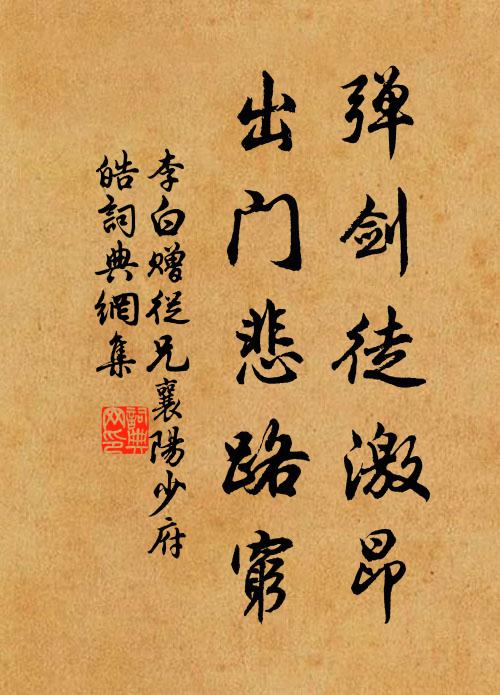 弹剑徒激昂
出门悲路穷
李白赠从兄襄陽少府
皓詞典網集
詞典網印